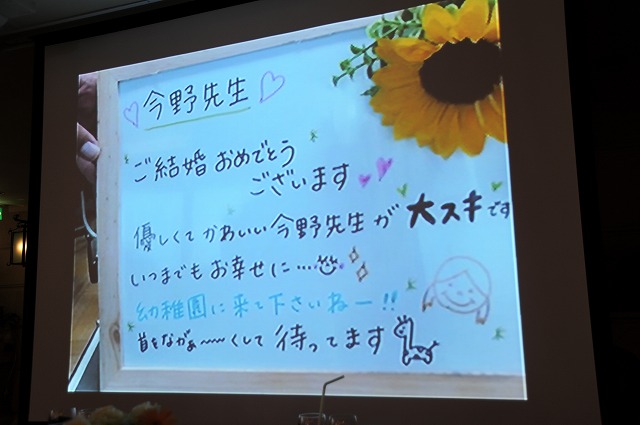 今野先生
ご結婚おめでとう
ございます
優しくてかわいい今野先生が大スキです
いつまでもお幸せに…
幼稚園に来て下さいねー!!
首をながぁ〜〜くして待ってます